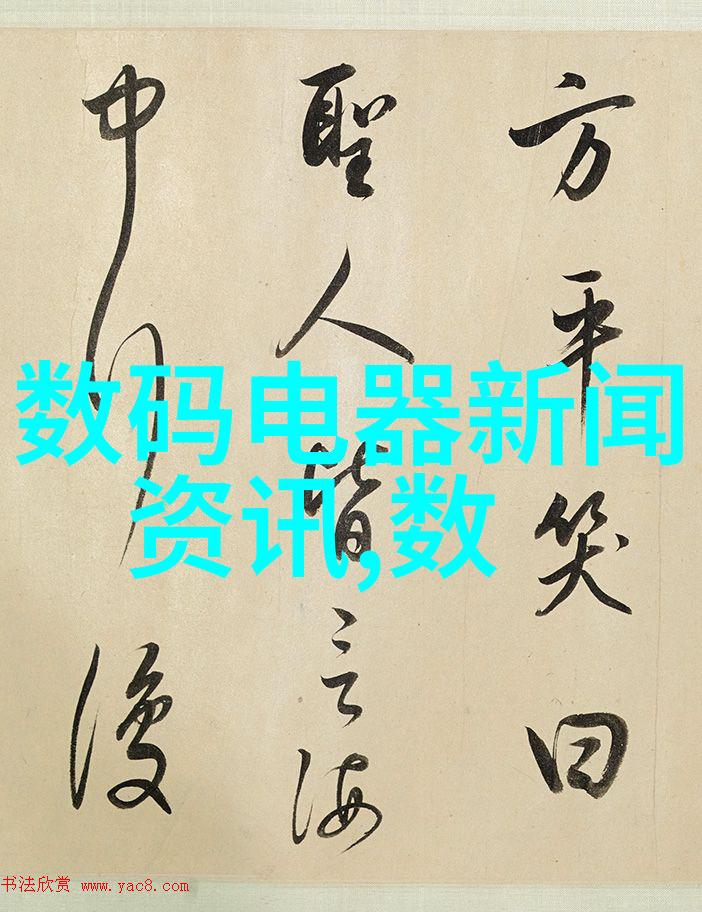 方平笑曰
聖人皆言海
中行復
数码电器新闻
资讯,数
书法欣赏 www.yac8.com